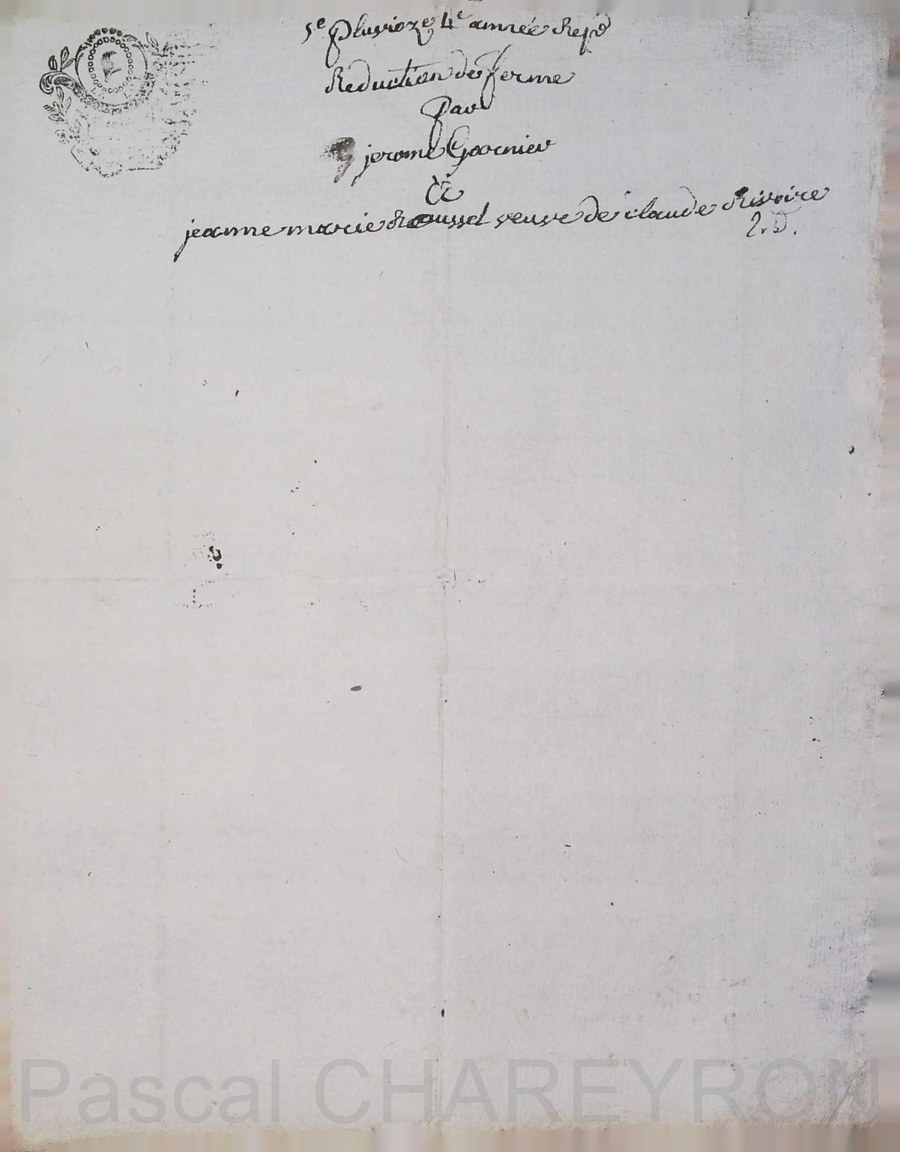 5e pluvioze 4e année Repe
Reduction de ferme
Par
jerome Garnier
&
jeanne marie Roussel veuve de claude Rivoire
2. D.
Pascal CHAREYRON